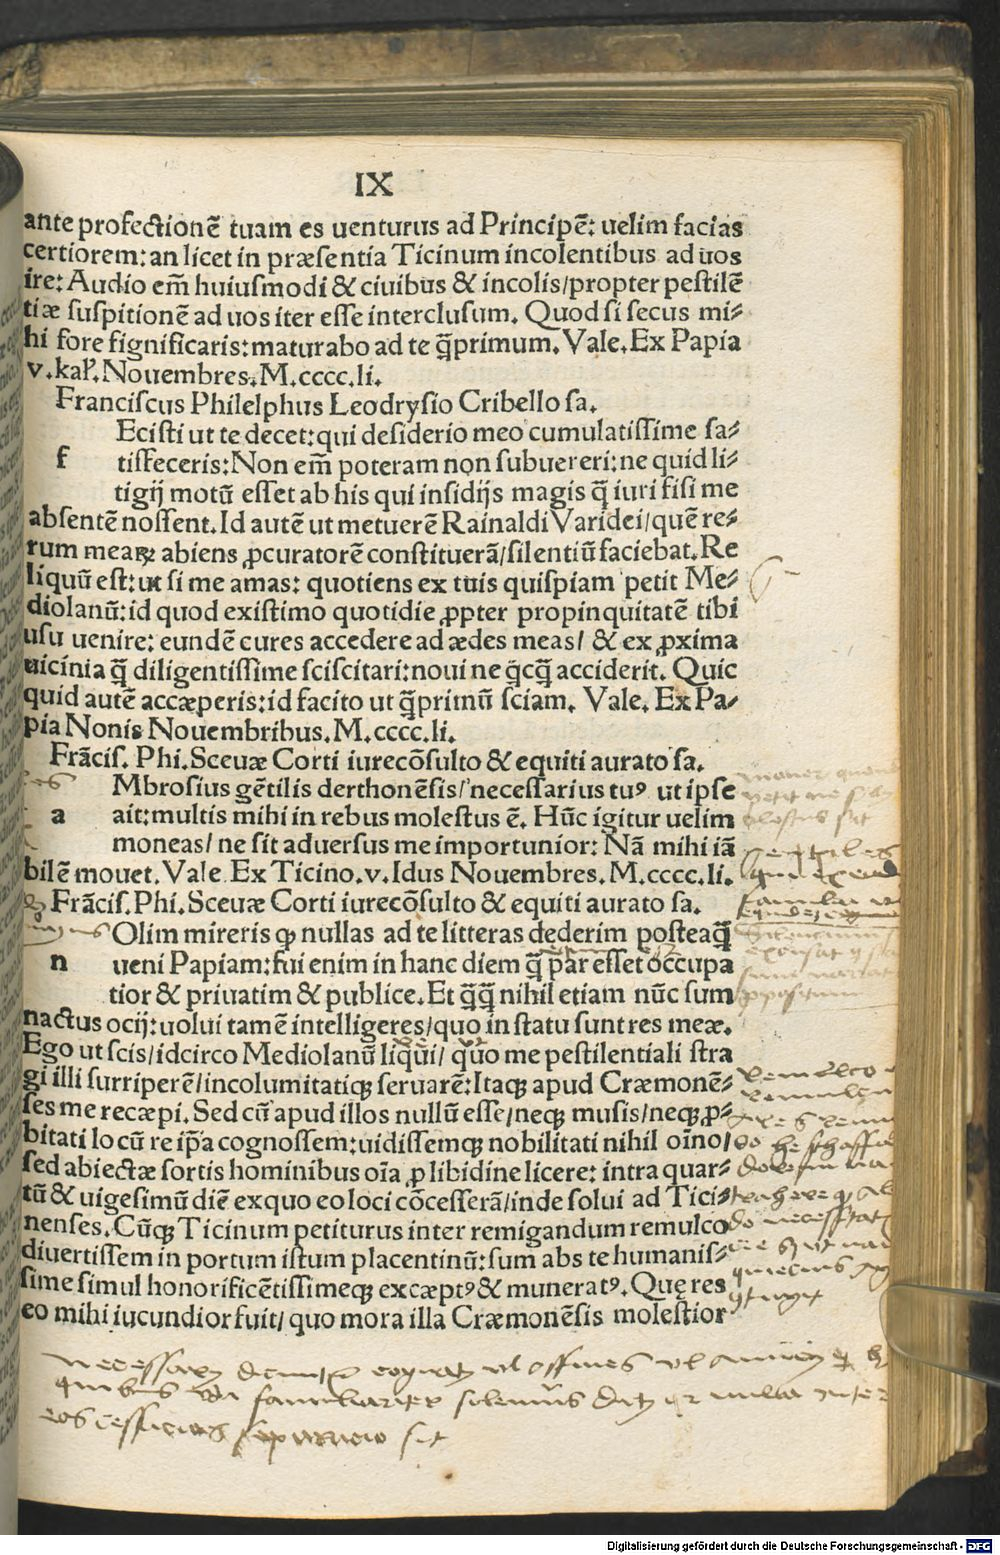 IX
ante profectionē tuam es uenturus ad Principē: uelim facias
certiorem: an licet in præsentia Ticinum incolentibus ad uos
ire: Audio em̄ huiusmodi & ciuibus & incolis/propter pestilē
tiæ suspitionē ad uos iter esse interclusum. Quod si secus mi⸗
hi fore significaris: maturabo ad te q̄primum. Vale. Ex Papia
v. kal'. Nouembres. M.cccc.li.
Franciscus Philelphus Leodrysio Cribello sa.
Ecisti ut te decet: qui desiderio meo cumulatissime sa⸗
f tisfeceris: Non em̄ poteram non subuereri: ne quid li⸗
tigij motū esset ab his qui insidijs magis q̄ iuri fisi me
absentē nossent. Id autē ut metuerē Rainaldi Varidei/quē re⸗
rum meaꝝ abiens ꝓcuratorē constituerā/silentiū faciebat. Re
liquū est: ut si me amas: quotiens ex tuis quispiam petit Me⸗
diolanū: id quod existimo quotidie ꝓpter propinquitatē tibi
usu uenire: eundē cures accedere ad ædes meas/ & ex ꝓxima
uicinia q̄ diligentissime sciscitari: noui ne q̄cq̄ acciderit. Quic
quid autē accæperis: id facito ut q̄primū sciam. Vale. Ex Pa⸗
pia Nonis Nouembribus. M.cccc.li.
Frācis. Phi. Sceuæ Corti iurecōsulto & equiti aurato sa.
Mbrosius gētilis derthonēsis/necessarius tuꝰ ut ipse
a ait: multis mihi in rebus molestus ē. Hūc igitur uelim
moneas/ ne sit aduersus me importunior: Nā mihi iā
bilē mouet. Vale. Ex Ticino. v. Idus Nouembres. M.cccc.li.
Frācis. Phi. Sceuæ Corti iurecōsulto & equiti aurato sa.
Olim mireris ꝙ nullas ad te litteras dederim posteaq̄
n ueni Papiam: fui enim in hanc diem q̄ par esset occupa
tior & priuatim & publice. Et q̄q̄ nihil etiam nūc sum
nactus ocij: uolui tamē intelligeres/quo in statu sunt res meæ.
Ego ut scis/idcirco Mediolanū liqui/ quo me pestilentiali stra
gi illi surriperē/incolumitatiqꝫ seruarē: Itaqꝫ apud Cræmonē⸗
ses me recæpi. Sed cū apud illos nullū esse/neqꝫ musis/neqꝫ ꝓ⸗
bitati locū re ip̄a cognossem: uidissemqꝫ nobilitati nihil oīno/
sed abiectæ sortis hominibus oīa ꝓ libidine licere: intra quar⸗
tū & uigesimū diē ex quo eo loci cōcesserā/inde solui ad Tici⸗
nenses. Cūqꝫ Ticinum petiturus inter remigandum remulco
diuertissem in portum istum placentinū: sum abs te humanis⸗
sime simul honorificētissimeqꝫ excæptꝰ & muneratꝰ. Quę res
eo mihi iucundior fuit/ quo mora illa Cræmonēsis molestior
gentiles
Digitalisierung gefördert durch die Deutsche Forschungsgemeinschaft - DFG